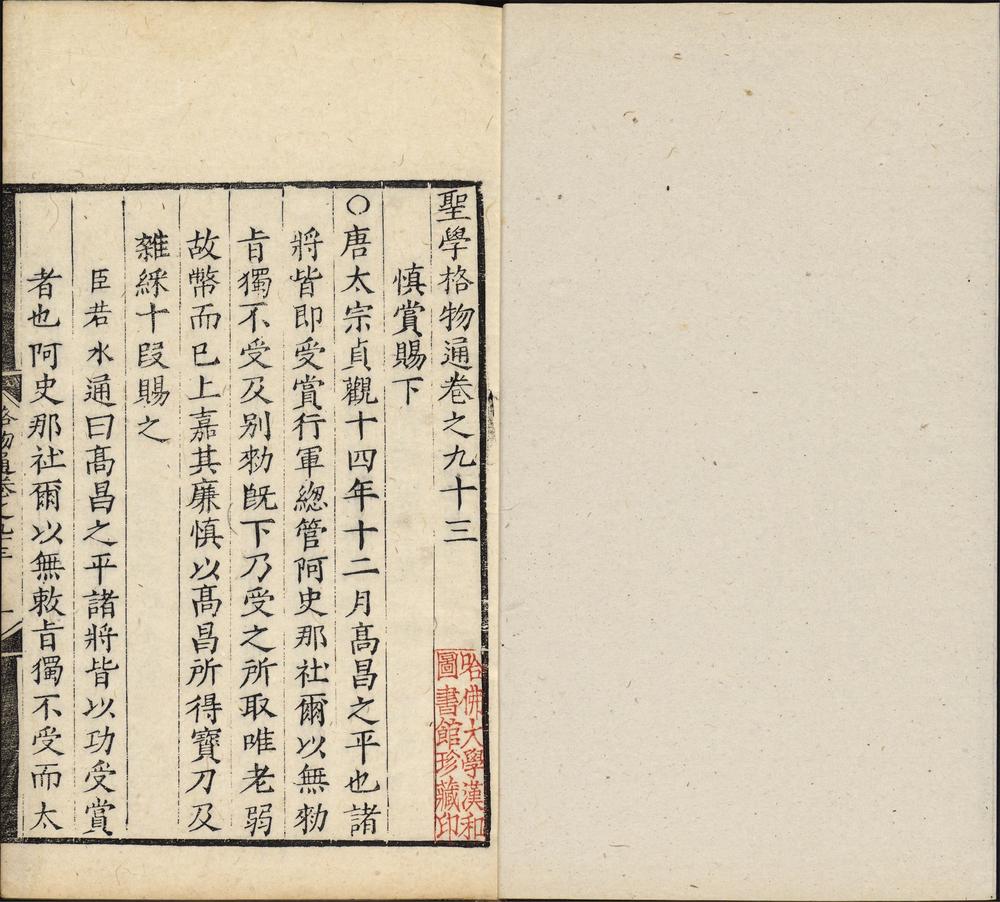 聖學格物通卷之九十三
慎賞賜下
○唐太宗貞觀十四年十二月髙昌之平也諸
將皆即受賞行軍總管阿史那社爾以無勑
旨獨不受及别勑旣下乃受之所取唯老弱
故幣而巳上嘉其廉慎以髙昌所得寶刀及
雜綵十段賜之
臣若水通曰髙昌之平諸將皆以功受賞
者也阿史那社爾以無敕旨獨不受而太
格物通卷之九十三
一
哈佛大學漢和
圖書館珍藏印